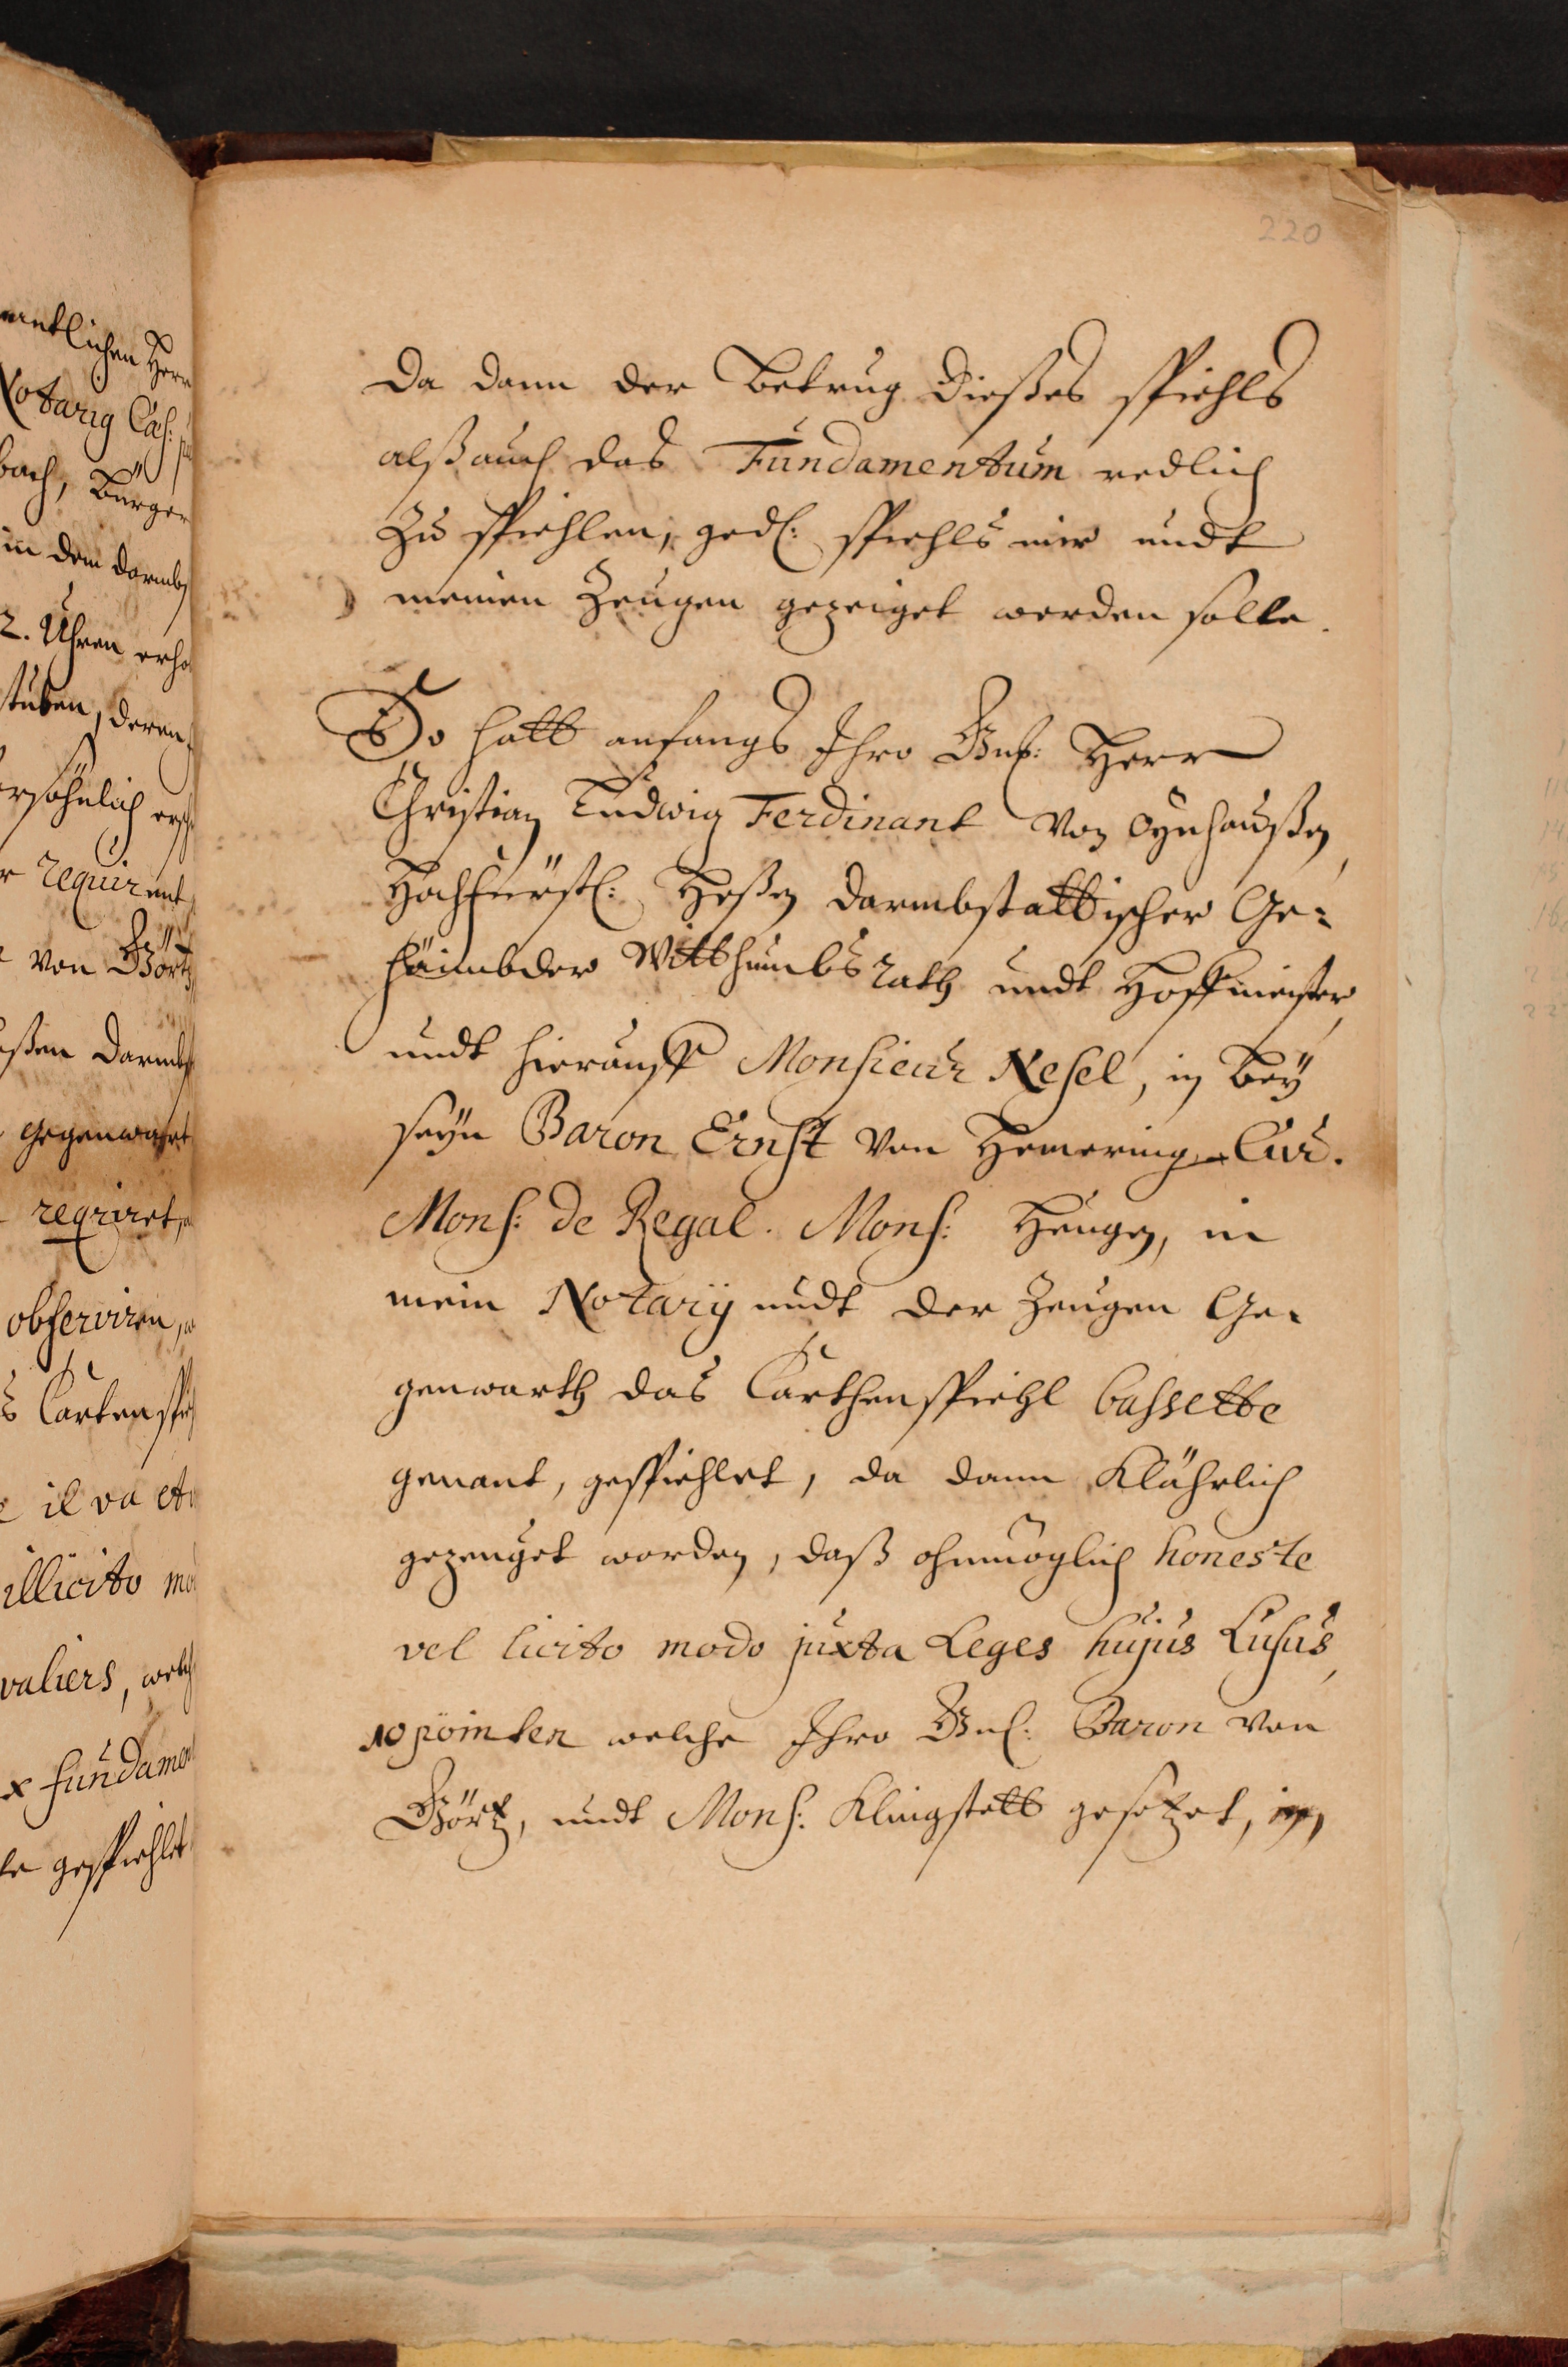 220
Da dann der Betrug dießes spiehls
alß auch das Fundamentum redlich
Zu spiehlen, gedl: spiehls mir undt
meinen Zeugen gezeiget werden solle.
So hatt anfangs Ihro Gnd: Herr
Christian Ludwig Ferdinant von Oynhaußen,
Hochfürstl: Heßen Darmbstattischer Ge-
häimbder Witthumbs Rath undt Hoffmeister,
undt hierauff Monsieur Nesel, in bey
seyn Baron Ernst von Hemering
Mons: de Regal. Mons: Heugen, in
mein Notarij undt der Zeugen Ge-
genwarth das Carthenspiehl bassette
genant, gespiehlet, da dann Klährlich
gezeuget worden, daß ohnmöglich honeste
vel licito modo juxta Leges hujus Lusus,
10 pointen welche Ihro Gnd: Baron von
Görtz, undt Mons: Klingstett gesetzet, in
Notarig
bach, Bürger
in dem darmbs
2. Uhren
stuben, deren
requirent
von Görtz
gegenwart
observiren,
Carten
il va
illicito
valiers,
gespiehlet